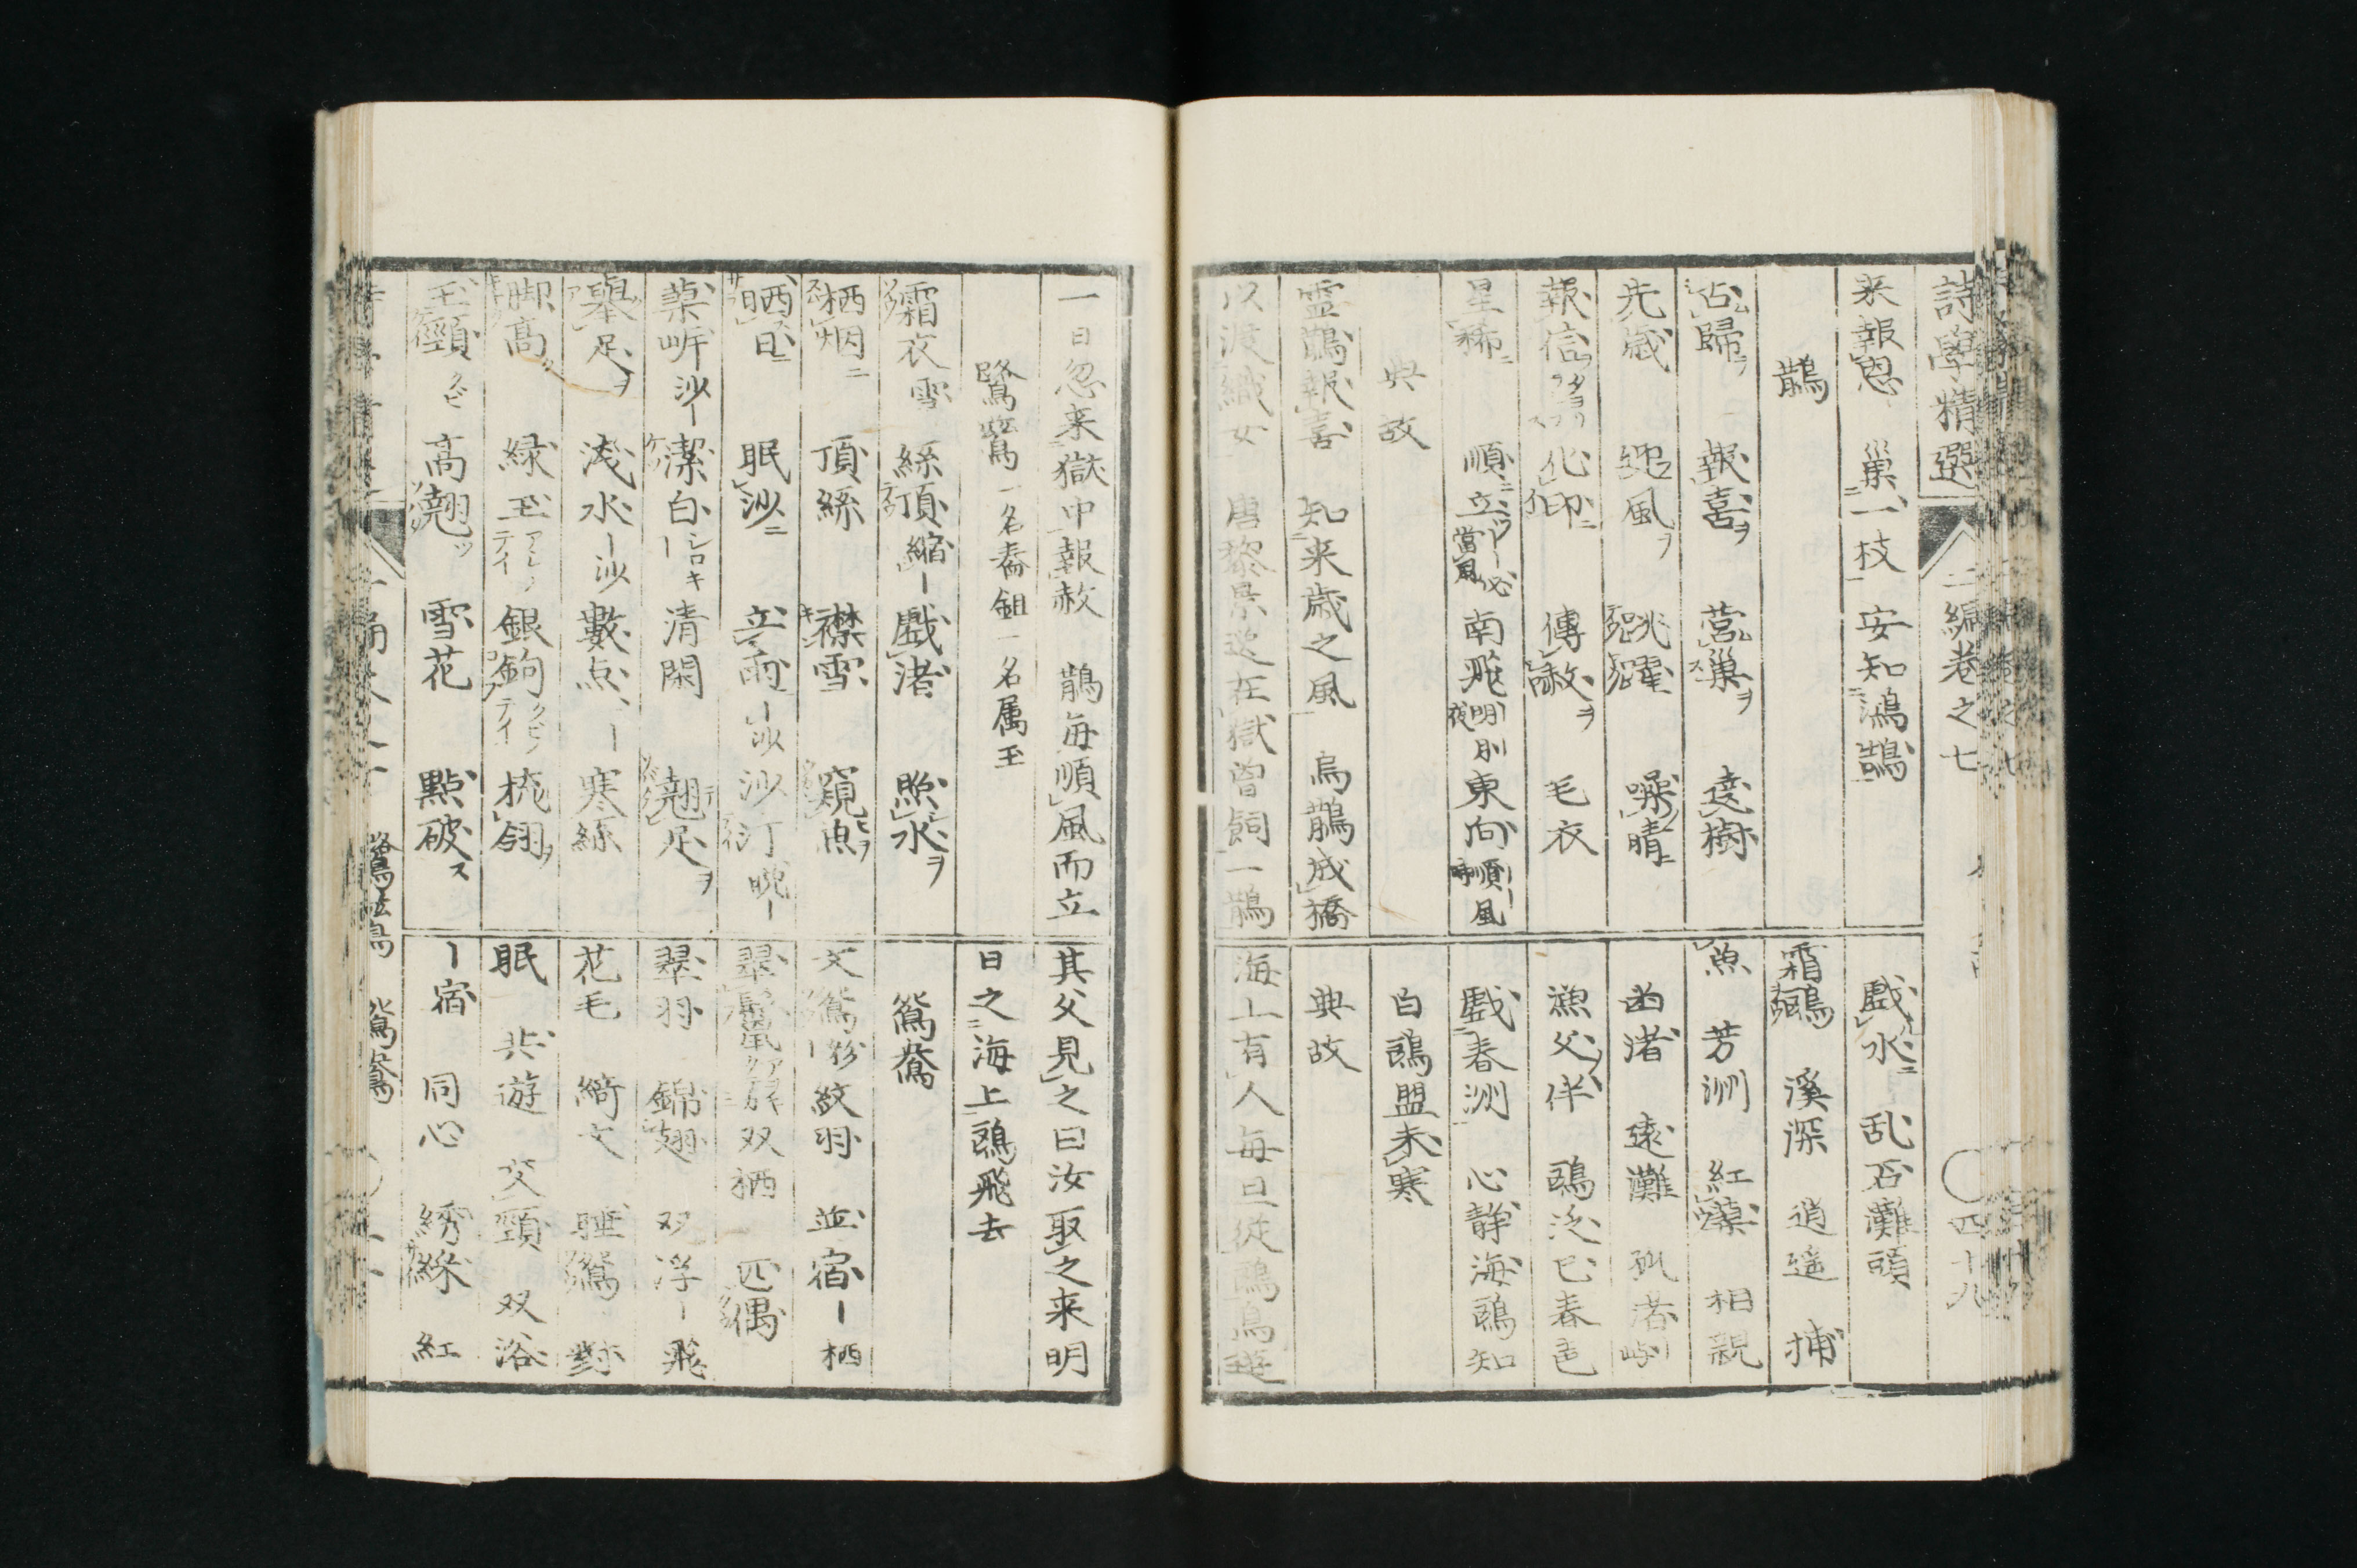 詩學精選 二編卷之七 四十九
来報恩 巣一枝 安知鴻鵠
鵲
占歸 報喜ヲ 営巣ヲ 遶樹
先歳 迎風ヲ 跳躍 噪晴ニ
報信 化印ニ 傳赦ヲ 毛衣
星稀ニ 順立 當風 南飛 明月夜 東向 順風
典故
霊鵲報喜 知来歳之風 烏鵲成橋
以渡織女 唐黎景逸在獄曽飼一鵲
戯水ニ 乱石灘頭
霜鷗 溪深 逍遥 捕
魚 芳洲 紅蓼 相親
渚 遠灘
漁父伴 鷗泛 春色
戯春洲 心静海鷗知
白鷗盟未寒
典故
海上有人毎旦従鷗鳥遊
一日忽来獄中報赦 鵲毎順風而立
鷺鷥 一名舂鉏 一名属玉
霜衣雪 絲頂縮ー 戯渚 照水ヲ
栖烟ニ 頂絲 襟雪 窺魚ヲ
晒日ニ 眠沙ニ 立雨ー沙 沙汀晩ー
葉岍沙ー 潔白 シロキ 清閑 翹足ヲ
擧足ヲ 浅水ー沙 數点ー 寒絲
脚高 緑玉 銀鉤 梳翎ヲ
玉頸 クビ 高翹 雪花 點破ス
其父見之曰汝取之来明
日之海上鷗飛去
鴛鴦
文鴛 紋羽 並宿ー栖
翠鬣 双栖 匹偶
翠羽 錦翅 双浮ー飛
花毛 綺文 睡鴛 對
眠 共遊 交頸 双浴
ー宿 同心 綉綵 紅
鷺鷥 鴛鴦